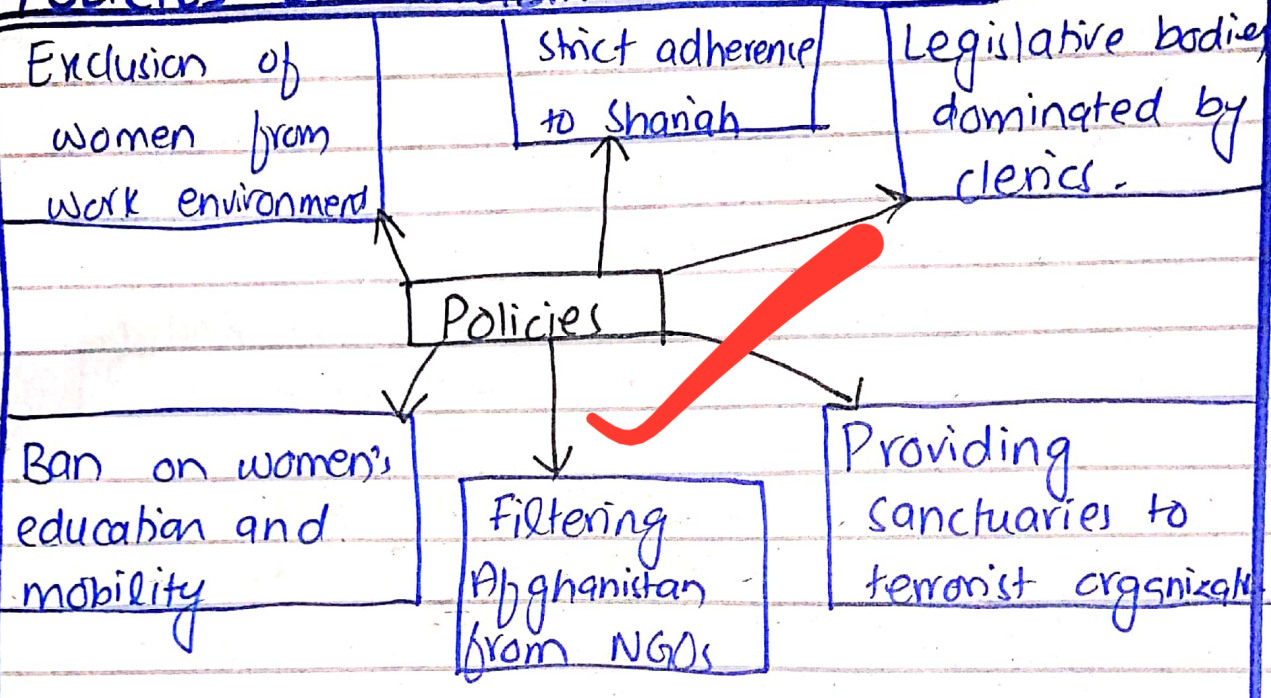 Exclusion of
women from
work environment
Strict adherence
to Shariah
Legislative bodies
dominated by
clerics.
Policies
Ban on women's
education and
mobility
Filtering
Afghanistan
from NGOs
Providing
sanctuaries to
terrorist